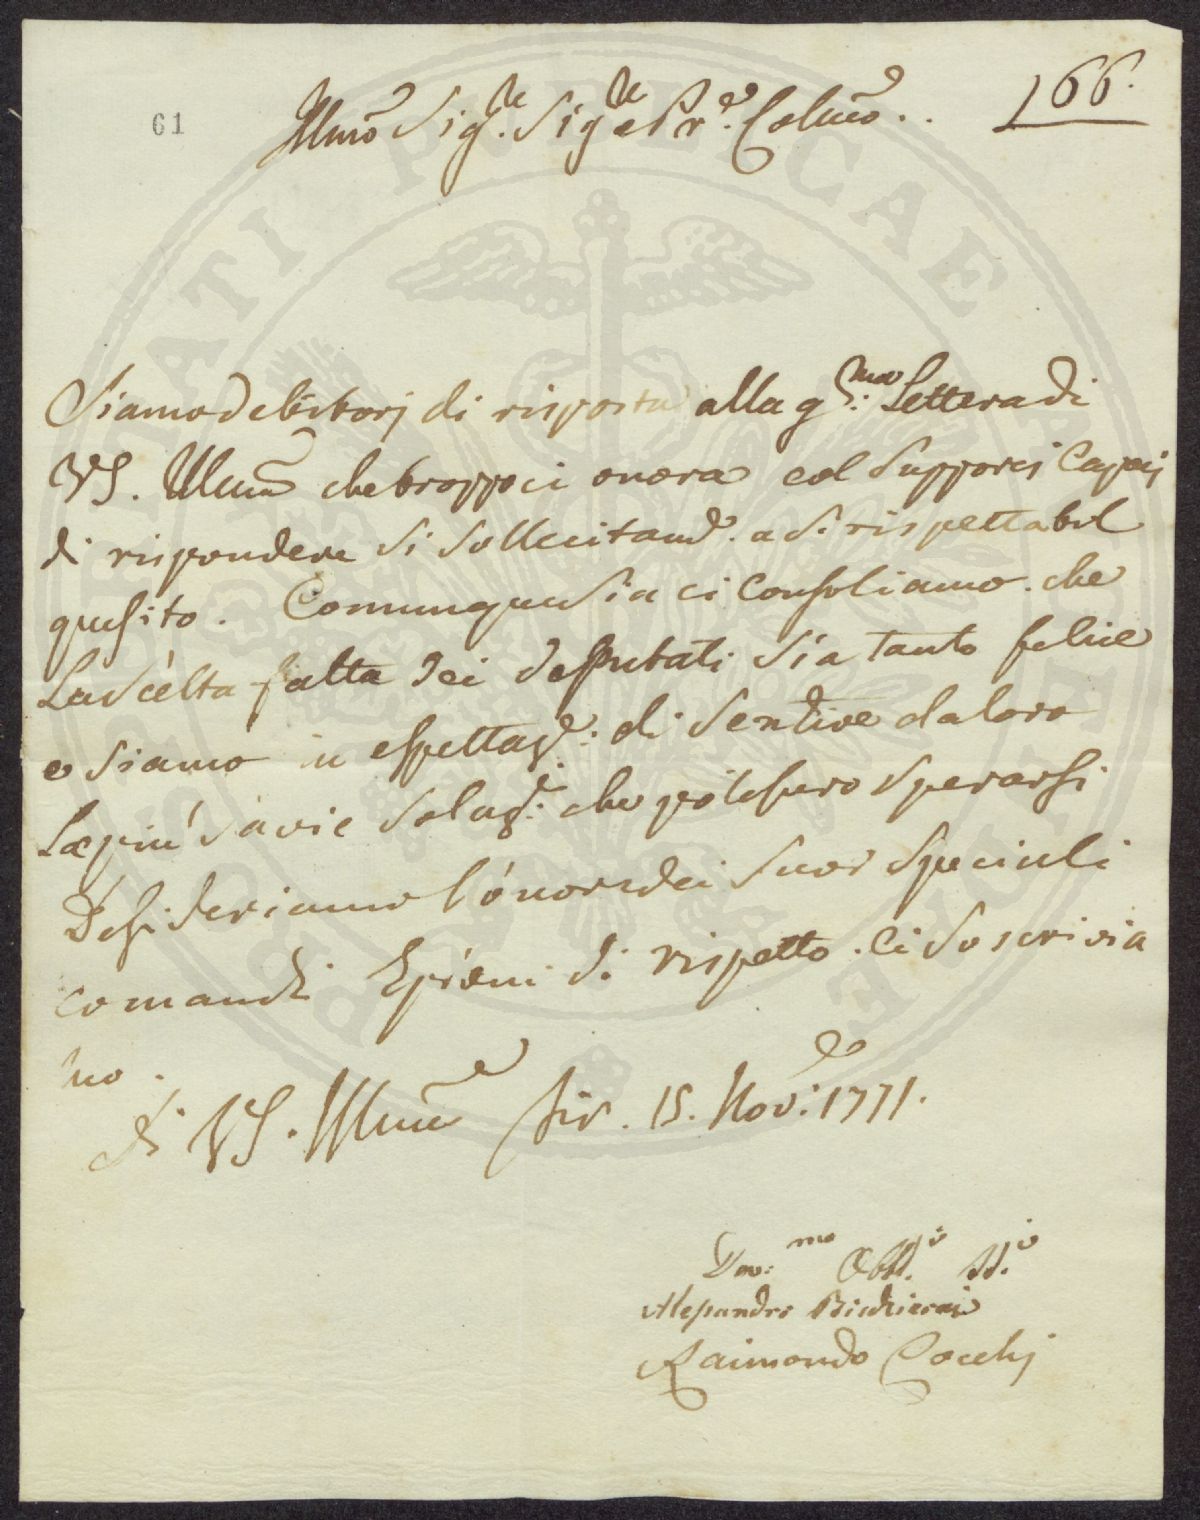 61
166.
Illmo Sig.re Sig.re e Pr.e Colmo..
Siamo debitorj di risposta alla g.ma Lettera di
VS. Illma che troppo ci onora col supporci Capaci
di rispondere si sollecitam.e a sì rispettabil
quesito. Comunque sia ci Consoliamo. che
La Scelta fatta dei deputati sia tanto felice
e siamo in espettaz.e: di sentire da loro
Le più savie soluz.i: che potessero sperarsi
Desideriamo l'onore dei suoi speciali
comandi E pieni di rispetto. Ci soscrivia
mo.
di VS. Illma Fir. 15. Nov.e: 1771.
Dev:mo Obbl.i SS.i
Alessandro Bicchierai
Raimondo Cocchj
PUBLICAE